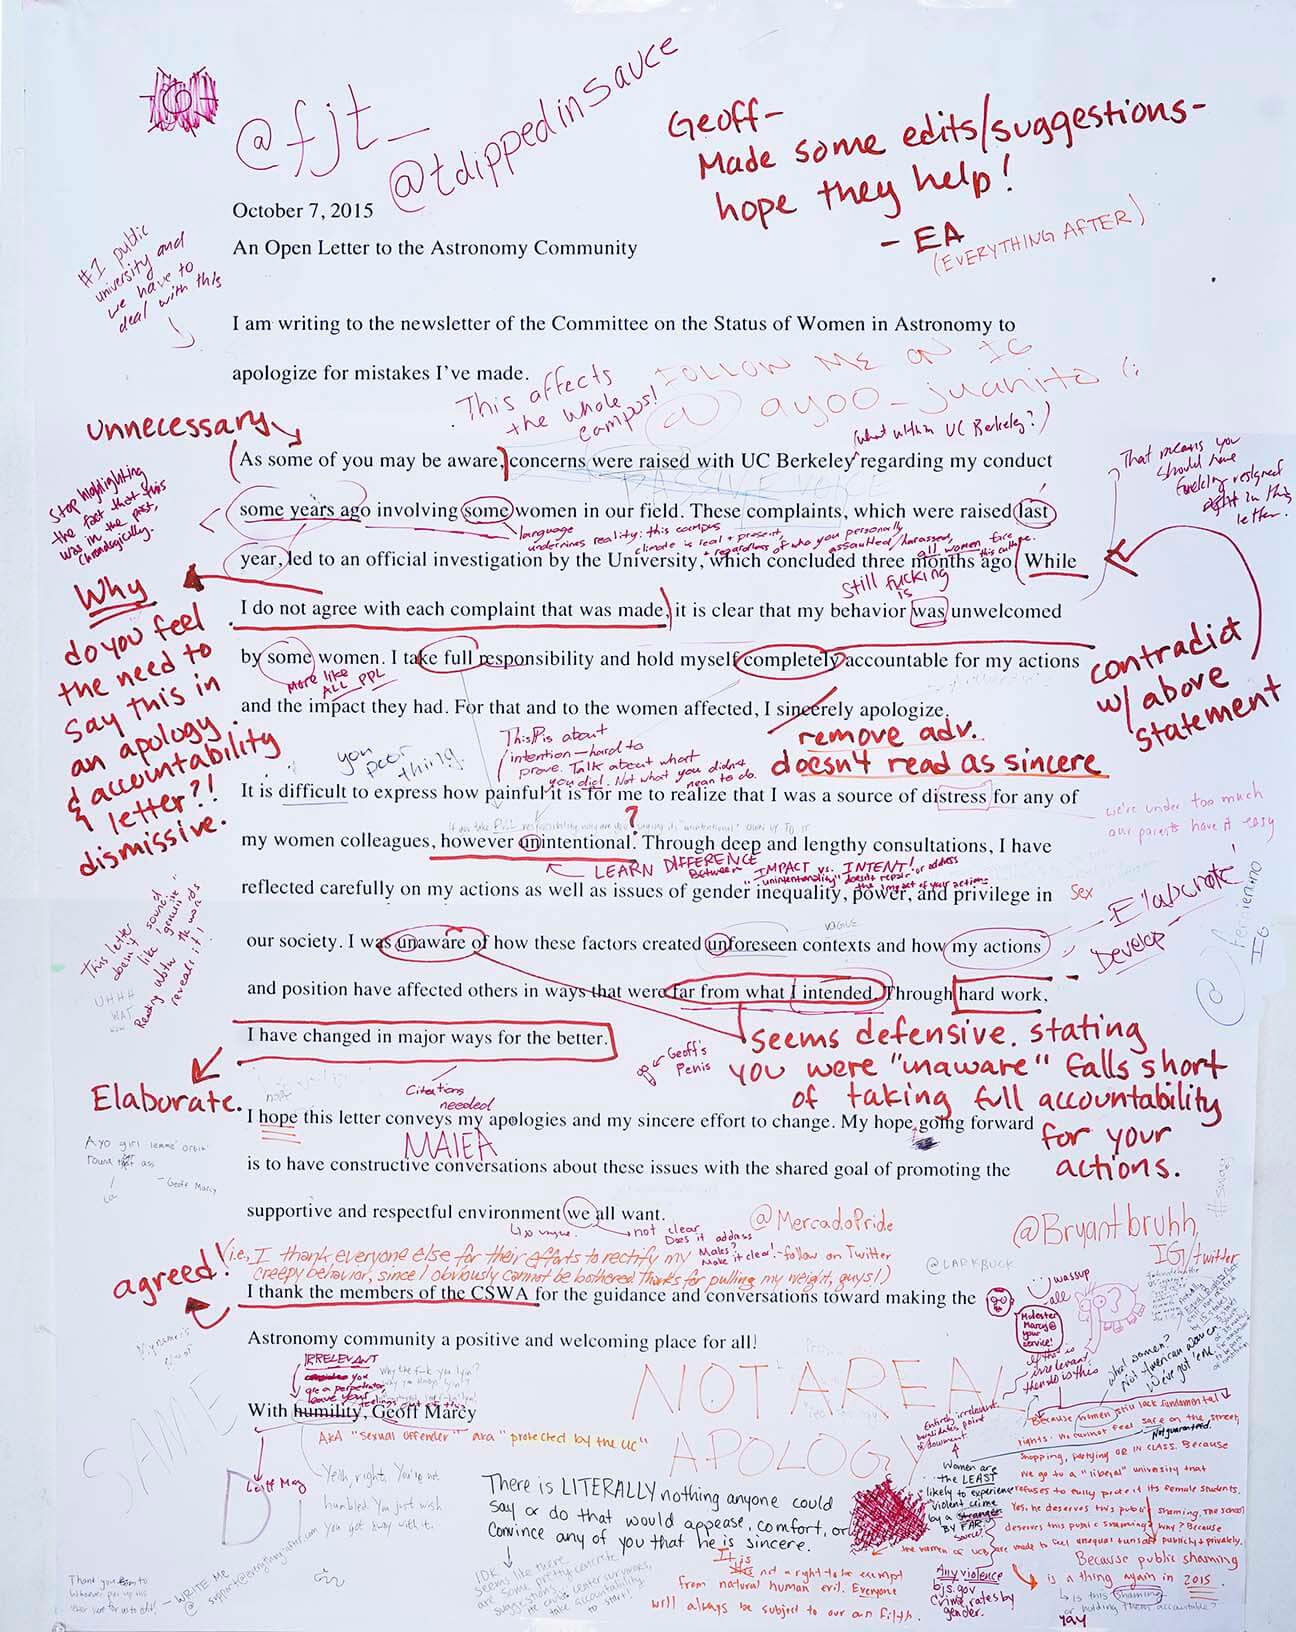 @fjt_
@tdippedinsauce
Geoff-
Made some edits/suggestions-
hope they help!
- EA
(EVERYTHING AFTER)
October 7, 2015
An Open Letter to the Astronomy Community
#1 public
university and
we have to
deal with this
I am writing to the newsletter of the Committee on the Status of Women in Astronomy to
apologize for mistakes I've made.
FOLLOW ME ON IG
@ayoo_juanito (:
This affects
the whole
campus!
unnecessary
(what within UC Berkeley?)
As some of you may be aware, concerns were raised with UC Berkeley regarding my conduct
PASSIVE VOICE
That means you
should have
fucking resigned
right in this
letter.
Stop highlighting
the fact that this
was in the past,
chronologically.
some years ago involving some women in our field. These complaints, which were raised last
language
undermines reality: this campus
climate is real + present,
+ regardless of who you personally
assaulted/harassed,
all women face
this culture.
year, led to an official investigation by the University, which concluded three months ago. While
Still fucking
is
I do not agree with each complaint that was made, it is clear that my behavior was unwelcomed
Why
do you feel
the need to
say this in
an apology
& accountability
letter?!
dismissive.
by some women. I take full responsibility and hold myself completely accountable for my actions
More like
ALL PPL
contradict
w/ above
statement
and the impact they had. For that and to the women affected, I sincerely apologize.
remove adv.
doesn't read as sincere
you
poor
thing.
This is about
intention-hard to
prove. Talk about what
you did. Not what you didn't
mean to do.
It is difficult to express how painful it is for me to realize that I was a source of distress for any of
we're under too much
our parents have it easy
my women colleagues, however unintentional. Through deep and lengthy consultations, I have
?
LEARN DIFFERENCE
Between IMPACT vs. INTENT!
"unintentionality" doesn't repair or address
the impact of your actions
reflected carefully on my actions as well as issues of gender inequality, power, and privilege in
Sex
Elaborate!
Develop
VAGUE
our society. I was unaware of how these factors created unforeseen contexts and how my actions
This letter
doesn't sound
like genuine
Reading btw the words
reveals it!
UHHH
WAT
and position have affected others in ways that were far from what I intended. Through hard work,
I have changed in major ways for the better.
seems defensive. stating
you were "unaware" falls short
of taking full accountability
for your
actions.
Geoff's
Penis
Elaborate.
Citations
needed
I hope this letter conveys my apologies and my sincere effort to change. My hope going forward
MAIEA
Ayo girl lemme orbit
round that ass
- Geoff Marcy
is to have constructive conversations about these issues with the shared goal of promoting the
supportive and respectful environment we all want.
#swag
@MercadoPride
follow on Twitter
@Bryantbruhh
IG/twitter
not clear
Does it address
Males?
Make it clear!
(i.e., I thank everyone else for their efforts to rectify my
creepy behavior, since I obviously cannot be bothered. Thanks for pulling my weight, guys!)
agreed!
@LARKBUCK
I thank the members of the CSWA for the guidance and conversations toward making the
wassup
all
Molester
Marcy @
your
service!
Astronomy community a positive and welcoming place for all!
IRRELEVANT
you
are a perpetrator,
leave your
feelings out of this
With humility, Geoff Marcy
AKA "sexual offender" aka "protected by the UC"
NOT A REAL
APOLOGY
SAME
Geoff Marcy
Yeah, right. You're not
humbled. You just wish
you got away with it.
There is LITERALLY nothing anyone could
say or do that would appease, comfort, or
convince any of you that he is sincere.
IDK
seems like there
are pretty concrete
suggestions here.
take accountability
to start!
It is not a right to be exempt
from natural human evil. Everyone
will always be subject to our own filth.
if this is
irrelevant
then so is this
what women?
Not American women
We've got 'em.
Entirely irrelevant
point
of document.
Women are
the LEAST
likely to experience
violent crime
by a stranger
BY FAR
source?
Any violence
bjs.gov
Crime rates by
gender.
Because women still lack fundamental
rights. We cannot feel safe on the street,
Not guaranteed.
shopping, partying OR IN CLASS. Because
we go to a "liberal" university that
refuses to fully protect its female students.
Yes, he deserves this public shaming. The school
deserves this public shaming. Why? Because
the women of UCB are made to feel unequal publicly + privately.
Because public shaming
is a thing again in 2015.
is this shaming
or holding them accountable?
yay
Thank you to
whoever put up this
- WRITE ME
@ support@everythingafter.com